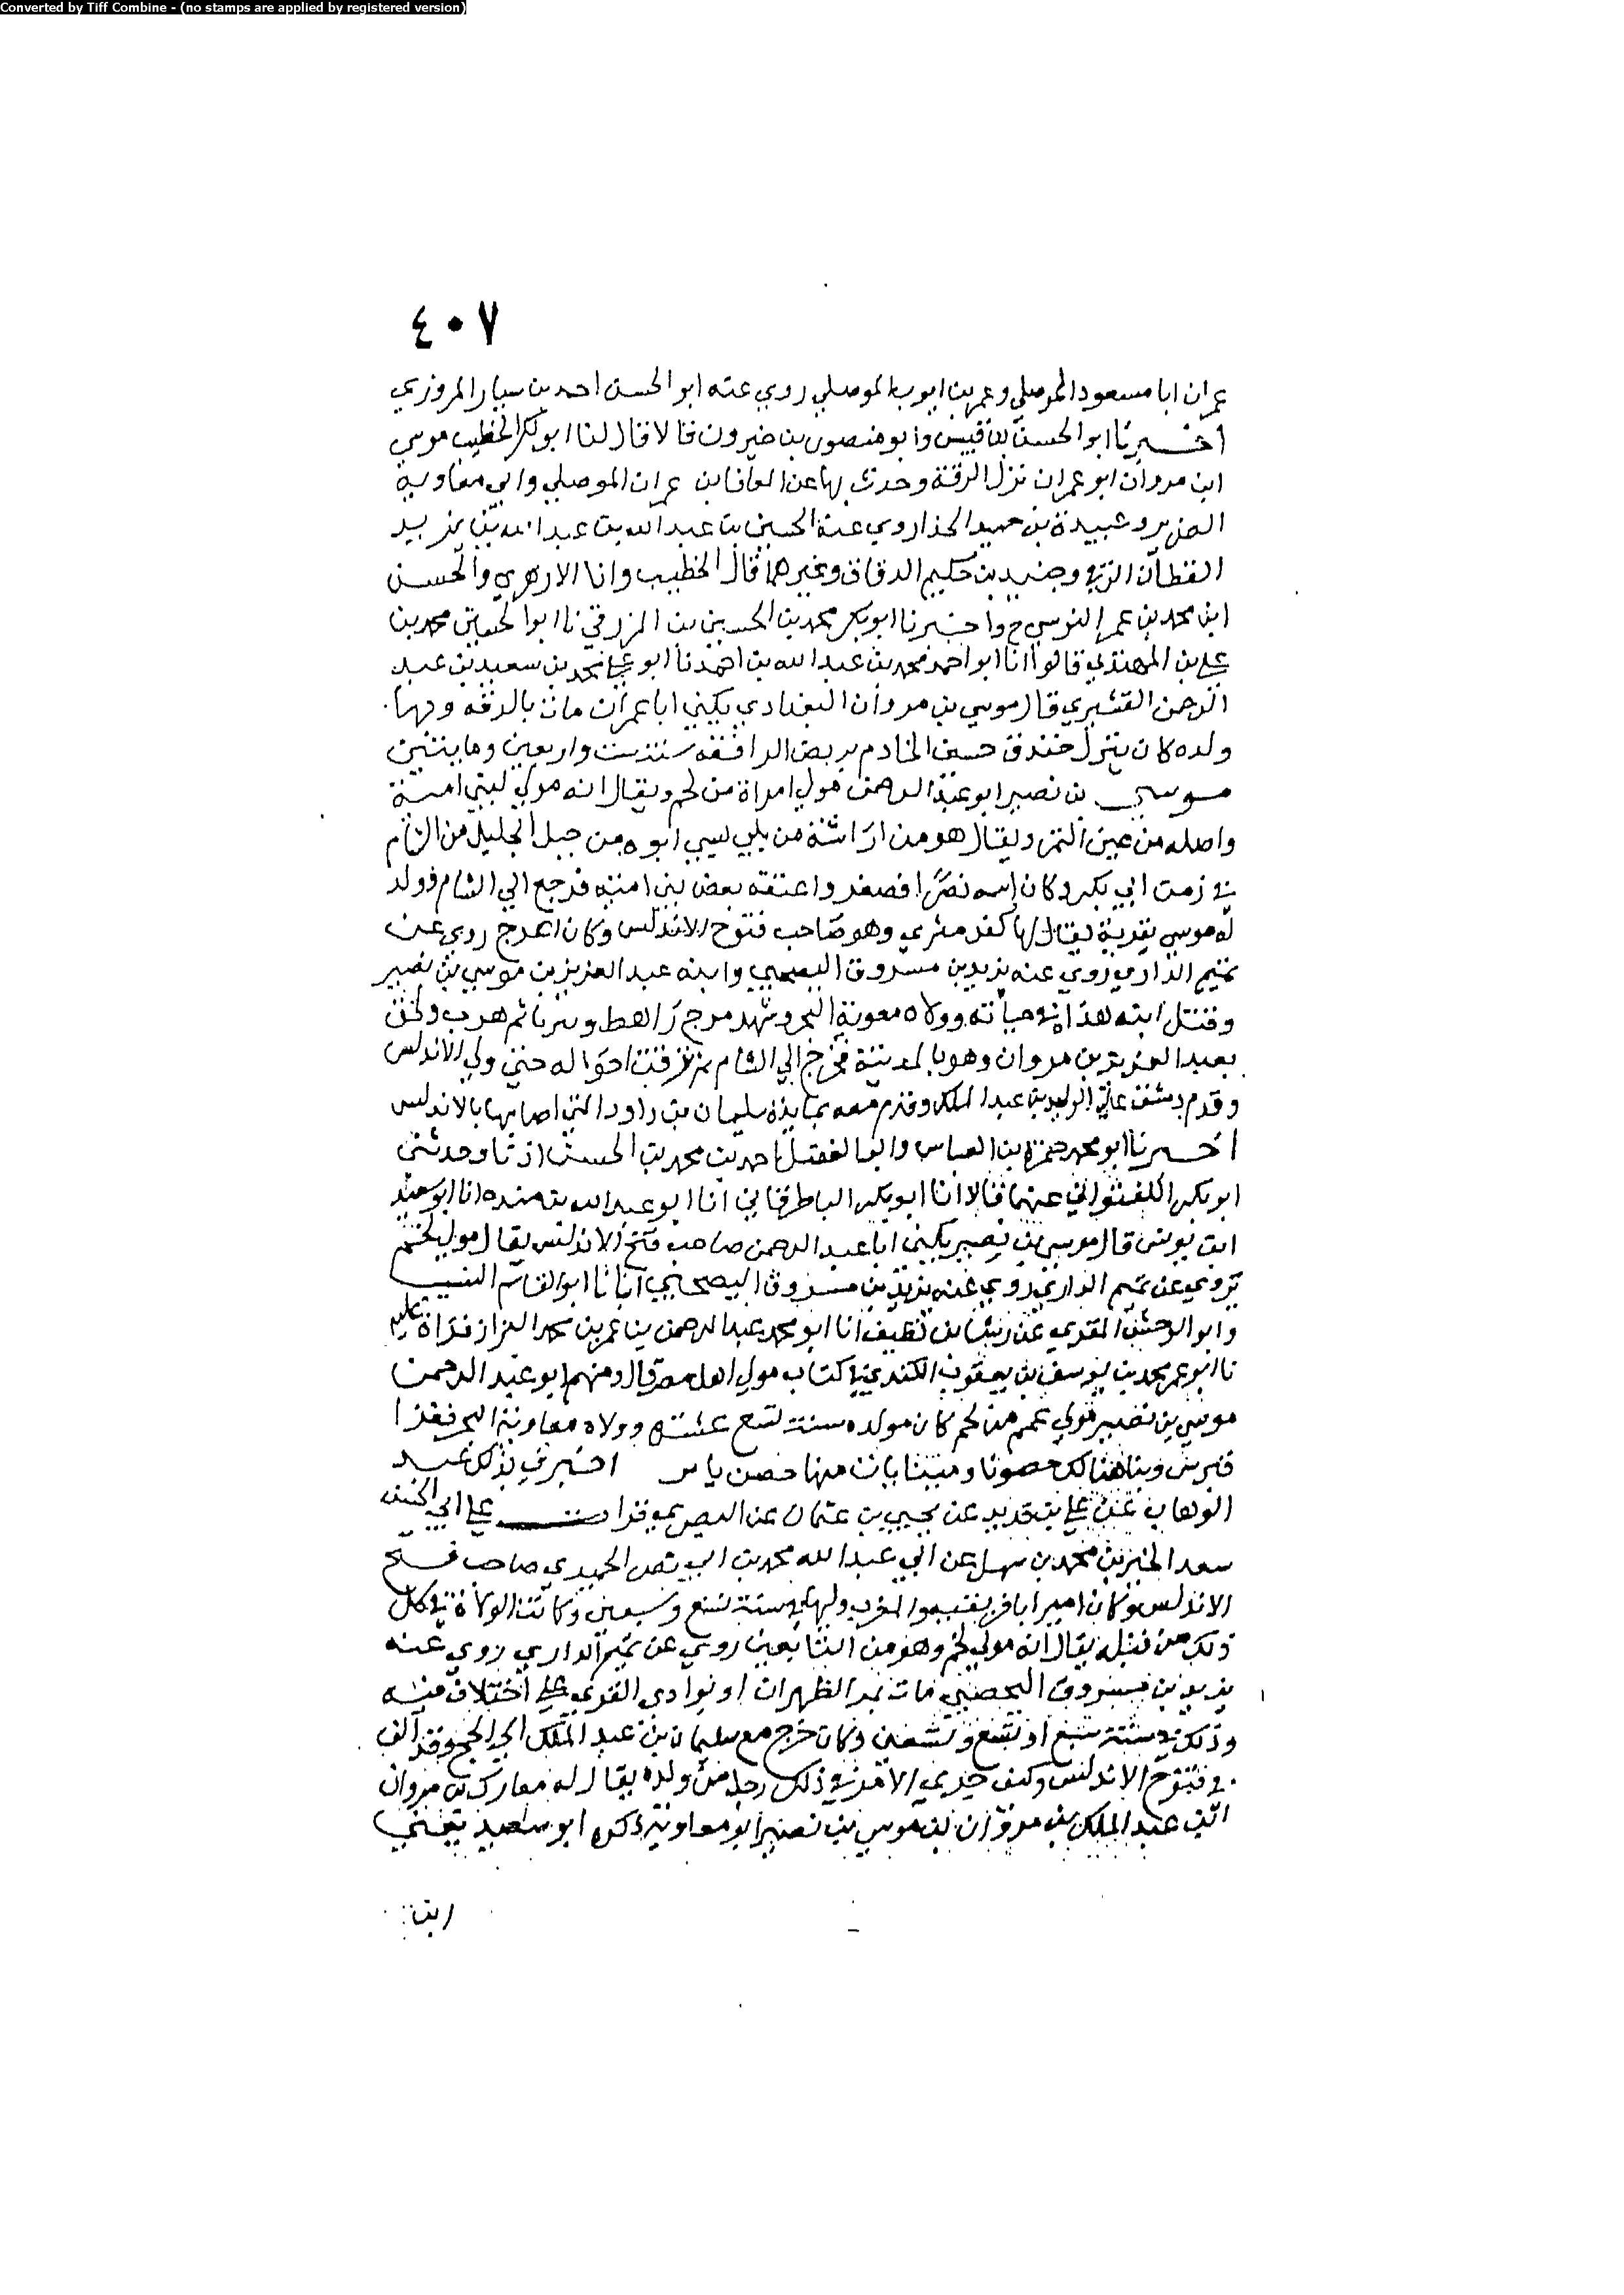 Converted by Tiff Combine - (no stamps are applied by registered version)
٤٠٧
عمران ابا مسعود الموصلي وعمر بن ايوب الموصلي روي عنه ابو الحسن احمد بن سيار المروزي
اخبرنا ابو الحسن بن قبيس وابو منصور بن خيرون قالا قال لنا ابو بكر الخطيب موسي
ابن مروان ابو عمران نزل الرقة وحدث بها عن المعافا بن عمران الموصلي وابي معاوية
الضرير وعبيدة بن حميد الحذا روي عنه الحسين بن عبد الله بن عبد الله بن يزيد
القطان الرقي وجنيد بن حكيم الدقاق وغيرهما قال الخطيب وانا الازهري والحسن
ابن محمد بن عمر النرسي ح واخبرنا ابو بكر محمد بن الحسين بن المزرقي نا ابو الحسين محمد بن
علي بن المهتدي قالوا انا ابو احمد محمد بن عبد الله بن احمد نا ابو علي محمد بن سعيد بن عبد
الرحمن القشيري قال موسي بن مروان البغدادي يكني ابا عمران مات بالرقه وبها
ولده كان ينزل خندق حسن الخادم بربض الرافقه سنة ست واربعين ومايتين
موسي بن نصير ابو عبد الرحمن مولي امراة من لخم ويقال انه مولي لبني امية
واصله من عين التمر ويقال هو من اراشة من بلي سبي ابوه من جبل الجليل من الشام
في زمن ابي بكر وكان اسمه نصرا فصغر واعتقه بعض بني امية فرجع الي الشام فولد
له موسي بقرية يقال لها كفر مثري وهو صاحب فتوح الاندلس وكان اعرج روي عن
تميم الداري روي عنه يزيد بن مسروق اليحصبي وابنه عبد العزيز بن موسي بن نصير
وقتل ابنه هذا في حياته وولاه معوية البحر وشهد مرج راهط وسرنا ثم هرب ولحق
بعبد العزيز بن مروان وهو بالمدينة فخرج الي الشام ثم ترقت احواله حتي ولي الاندلس
وقدم دمشق علي الوليد بن عبد الملك وقدم معه بمايدة سليمان بن داود التي اصابها بالاندلس
اخبرنا ابو محمد حمزة بن العباس وابو الفضل احمد بن محمد بن الحسن اذنا وحدثني
ابو بكر اللفتواني عنهما قالا انا ابو بكر الباطرقاني انا ابو عبد الله بن منده انا ابو سعيد
ابن يونس قال موسي بن نصير يكني ابا عبد الرحمن صاحب فتح الاندلس يقال مولي لخم
يروي عن تميم الداري روي عنه يزيد بن مسروق اليحصبي انبانا ابو القاسم النسيب
وابو الوحش المقري عن رشا بن نظيف انا ابو محمد عبد الرحمن بن عمر بن محمد البزاز قراة عليه
نا ابو عمر محمد بن يوسف بن يعقوب الكندي في كتاب موالي اهل مصر قال ومنهم ابو عبد الرحمن
موسي بن نصير مولي عمم من لخم كان مولده سنة تسع عشرة وولاه معاوية البحر فغزا
قبرس وبنا هنالك حصونا بانت منها حصن يابس اخبرني بذلك عبد
الوهاب عن علي بن قديد عن يحيي بن عثمان عن البصري قرات علي ابي الحسن
سعد الخير بن محمد بن سهل عن ابي عبد الله محمد بن ابي نصر الحميدي صاحب فتح
الاندلس وكان اميرا بافريقية والمغرب وليها سنة تسع وسبعين وكانت الولاة في كل
ذلك من قبله يقال انه مولي لخم وهو من التابعين روي عن تميم الداري روي عنه
يزيد بن مسروق اليحصبي مات بمر الظهران او بوادي القري علي اختلاف فيه
وذلك في سنة سبع او تسع وتسعين وكان خرج مع سليمان بن عبد الملك الي الحج وقد الف
في فتوح الاندلس وكيف جري الامر في ذلك رجل من ولده يقال له معارك بن مروان
ابن عبد الملك بن مروان بن موسي بن نصير ابو معاوية ذكره ابو سعيد يعني
ابن